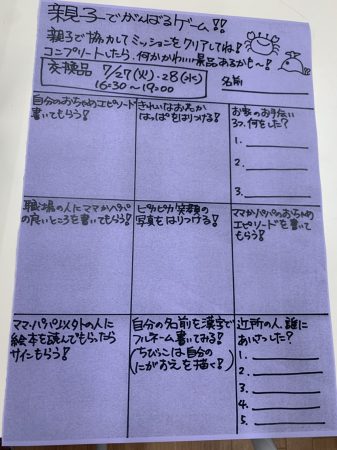 親子でがんばるゲーム!!
親子で協力してミッションをクリアしてね!
コンプリートしたら、何かかわいい景品あるかも〜!
交換品 7/27(火)・28(水)
16:30〜19:00
名前
自分のおちゃめエピソード
書いてもらう!
きれいなお花か
はっぱをはりつける!
お家のお手ない
3つ、何をした?
1.
2.
3.
職場の人にママかパパ
の良いところを書いてもらう!
ピカピカ笑顔の
写真をはりつける!
ママかパパのおちゃめ
エピソードを書いて
もらう!
ママ・パパ以外の人に
絵本を読んでもらったら
サインもらう!
自分の名前を漢字で
フルネーム書いてみる!
(ちびっこは自分の
にがおえを描く!)
近所の人、誰に
あいさつした?
1.
2.
3.
4.
5.